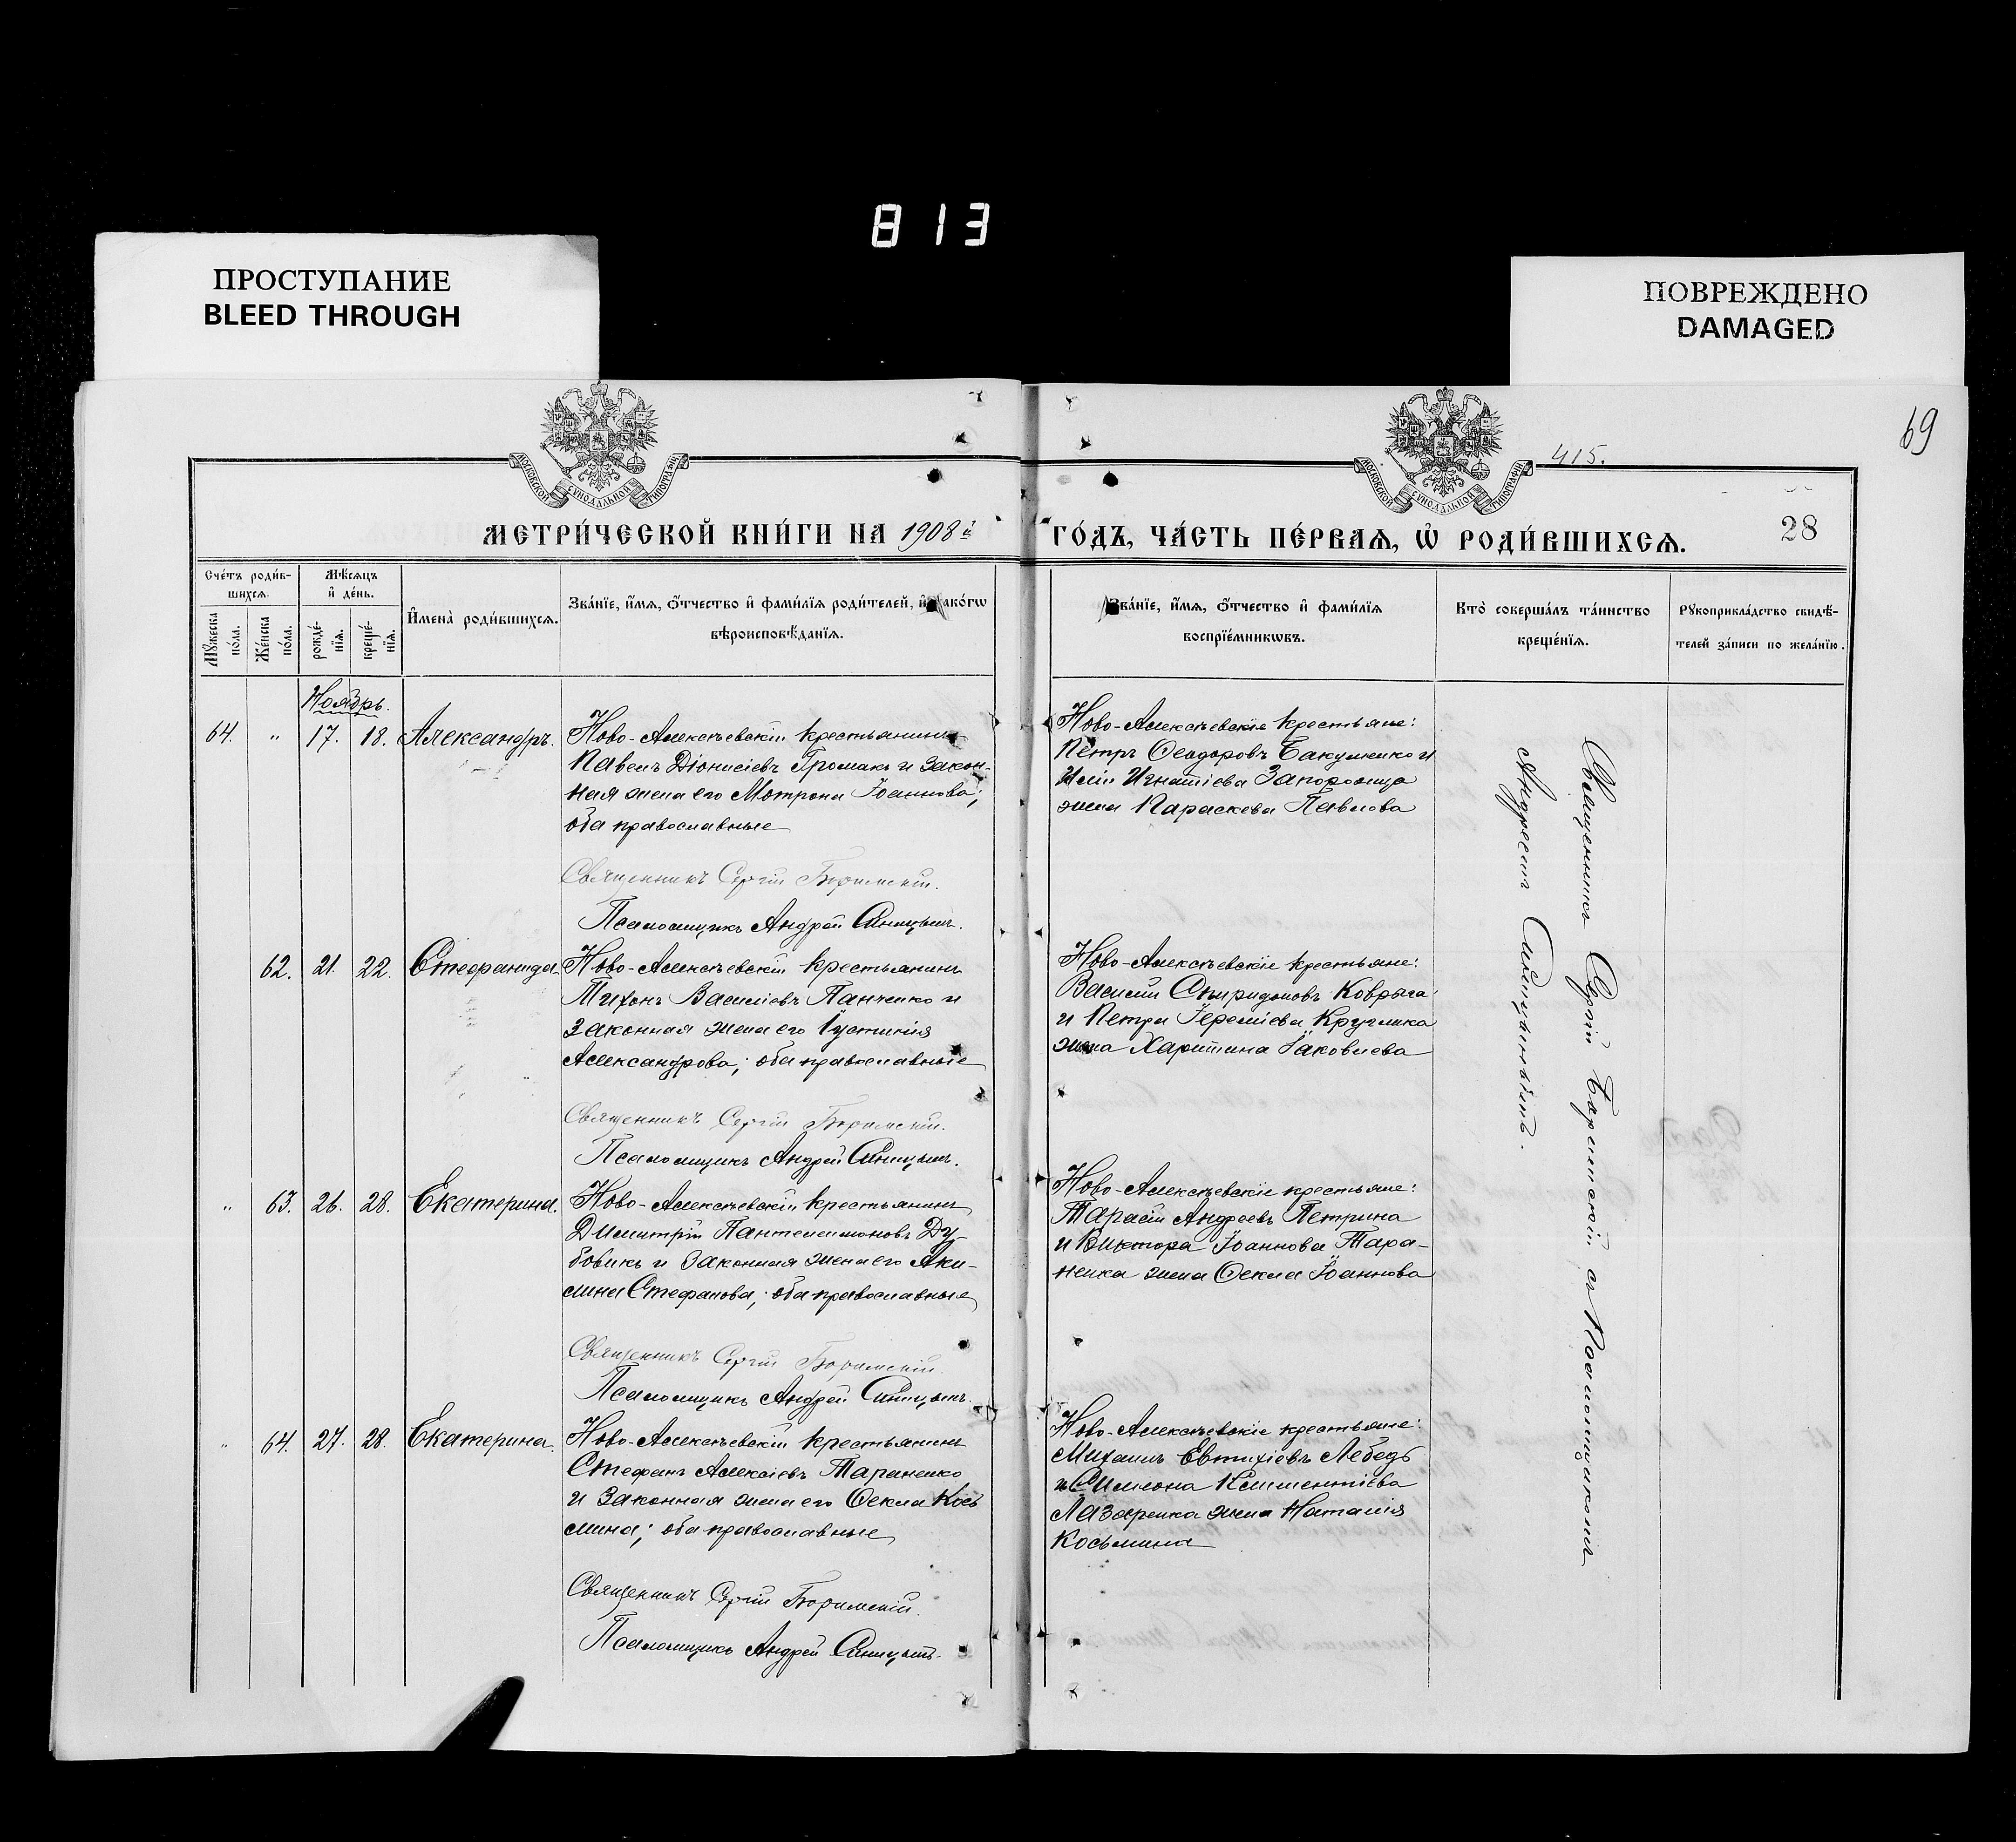 813
ПРОСТУПАНИЕ
BLEED THROUGH
ПОВРЕЖДЕНО
DAMAGED
69
415.
МОСКОВСКОЙ СѴНОДАЛЬНОЙ ТИПОГРАФІИ
МОСКОВСКОЙ СѴНОДАЛЬНОЙ ТИПОГРАФІИ
МЕТРИ́ЧЕСКОЙ КНИ́ГИ НА 1908й
ГО́ДЪ, ЧА́СТЬ ПЕ́РВАѦ, Ѡ҆ РОДИ́ВШИХСѦ.
28
Сче́тъ роди́в-
шихсѧ.
Мꙋ́жеска по́ла.
Же́нска по́ла.
Мѣ́сѧцъ
и҆ де́нь.
рожде́-
нїѧ.
креще́-
нїѧ.
И҆мена̀ роди́вшихсѧ.
Зва́нїе, и҆́мѧ, ѻ҆́тчество и҆ фами́лїѧ роди́телей, и҆ како́гѡ
вѣроисповѣ́данїѧ.
Зва́нїе, и҆́мѧ, ѻ҆́тчество и҆ фами́лїѧ
воспрїе́мникѡвъ.
Кто̀ соверша́лъ та́инство
креще́нїѧ.
Рꙋкоприкла́дство свидѣ́-
телей за́писи по жела́нїю.
Ноябрь.
64. " 17. 18. Александръ.
Ново-Алексѣевскій крестьянинъ
Павелъ Діонисіевъ Громакъ и закон-
ная жена его Мотрона Іоаннова;
оба православные
Священникъ Сергій Боримскій.
Псаломщикъ Андрей Синицынъ.
Ново-Алексѣевскіе крестьяне:
Петръ Ѳеодоровъ Бакуменко и
Иліи Игнатіева Запорожца
жена Параскева Павлова
62. 21. 22. Стефанида
Ново-Алексѣевскій крестьянинъ
Тихонъ Василіевъ Панченко и
законная жена его Іустинія
Александрова; оба православные
Священникъ Сергій Боримскій.
Псаломщикъ Андрей Синицынъ.
Ново-Алексѣевскіе крестьяне:
Василій Спиридоновъ Коврыга
и Петра Іереміева Круглика
жена Харитина Іаковлева
" 63. 26. 28. Екатерина.
Ново-Алексѣевскій крестьянинъ
Димитрій Пантелеимоновъ Ду-
бовикъ и законная жена его Аки-
лина Стефанова; оба православные
Священникъ Сергій Боримскій.
Псаломщикъ Андрей Синицынъ.
Ново-Алексѣевскіе крестьяне:
Тарасій Андреевъ Петрина
и Виктора Іоаннова Тара-
ненка жена Ѳекла Іоаннова
" 64. 27. 28. Екатерина.
Ново-Алексѣевскій крестьянинъ
Стефанъ Алексіевъ Тараненко
и законная жена его Ѳекла Кось
мина; оба православные
Священникъ Сергій Боримскій.
Псаломщикъ Андрей Синицынъ.
Ново-Алексѣевскіе крестьяне:
Михаилъ Евтихіевъ Лебедь
и Симеона Климентіева
Лазаренка жена Наталія
Косьмина
Священникъ Сергій Боримскій съ Псаломщикомъ
Андреемъ Синицынымъ.